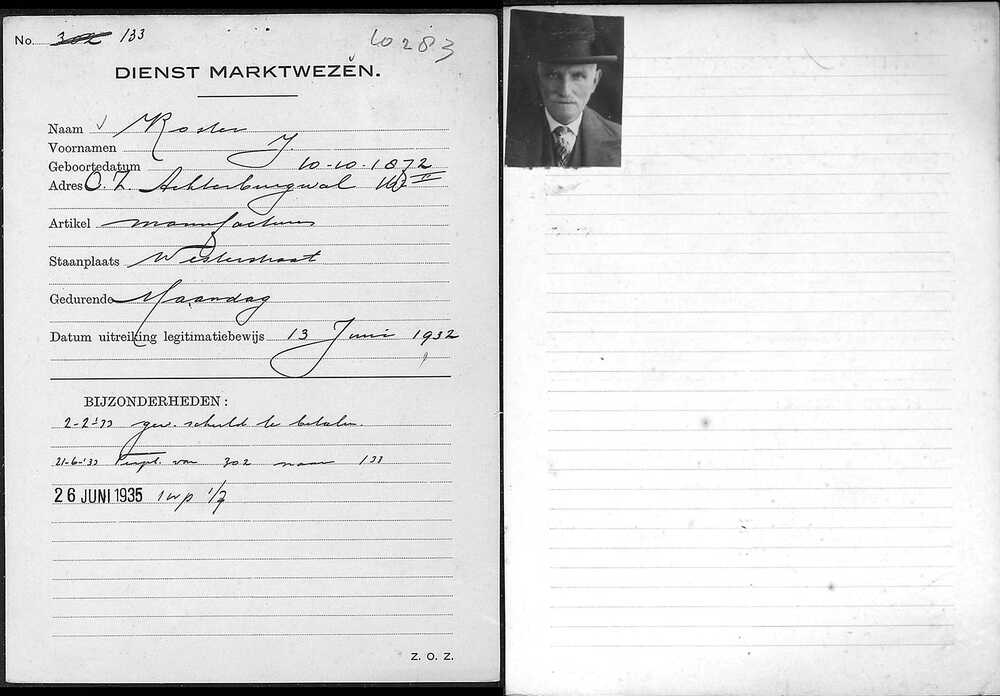 No. 302 133
10283
DIENST MARKTWEZEN.
Naam Koster
Voornamen J.
Geboortedatum 10-10-1872
Adres O. Z. Achterburgwal II
Artikel manufacturen
Staanplaats Westerstraat
Gedurende Maandag
Datum uitreiking legitimatiebewijs 13 Juni 1932
BIJZONDERHEDEN:
2-2-'33 gew. schuld te betalen.
21-6-'33 Verpl. van 302 naar 133
26 JUNI 1935 1 wp 1/7
Z. O. Z.